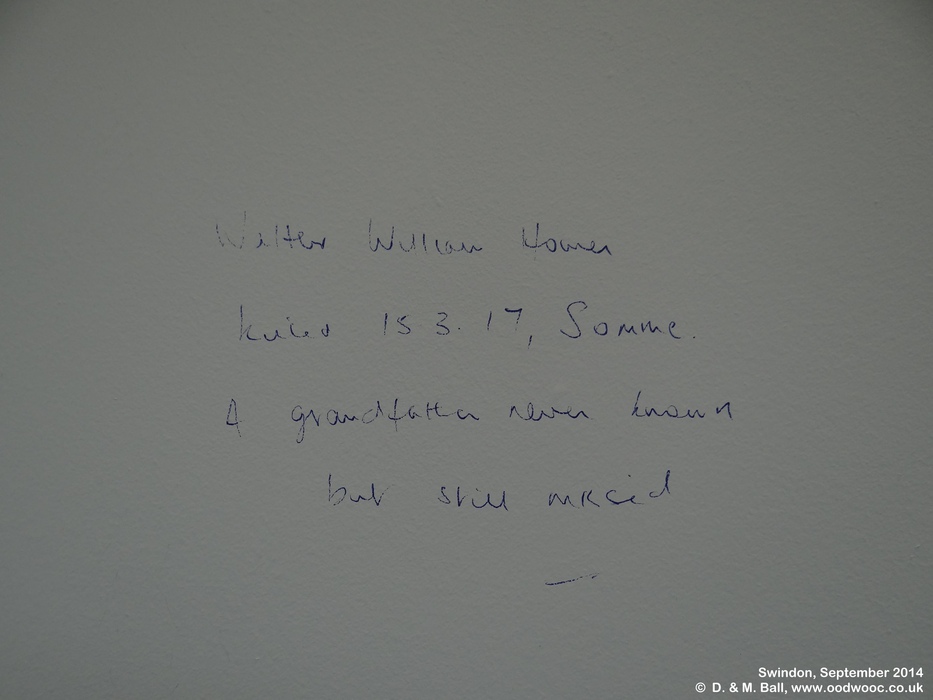 Walter William Homer
killed 15 3.17, Somme.
A grandfather never known
but still missed
Swindon, September 2014
© D. & M. Ball, www.oodwooc.co.uk